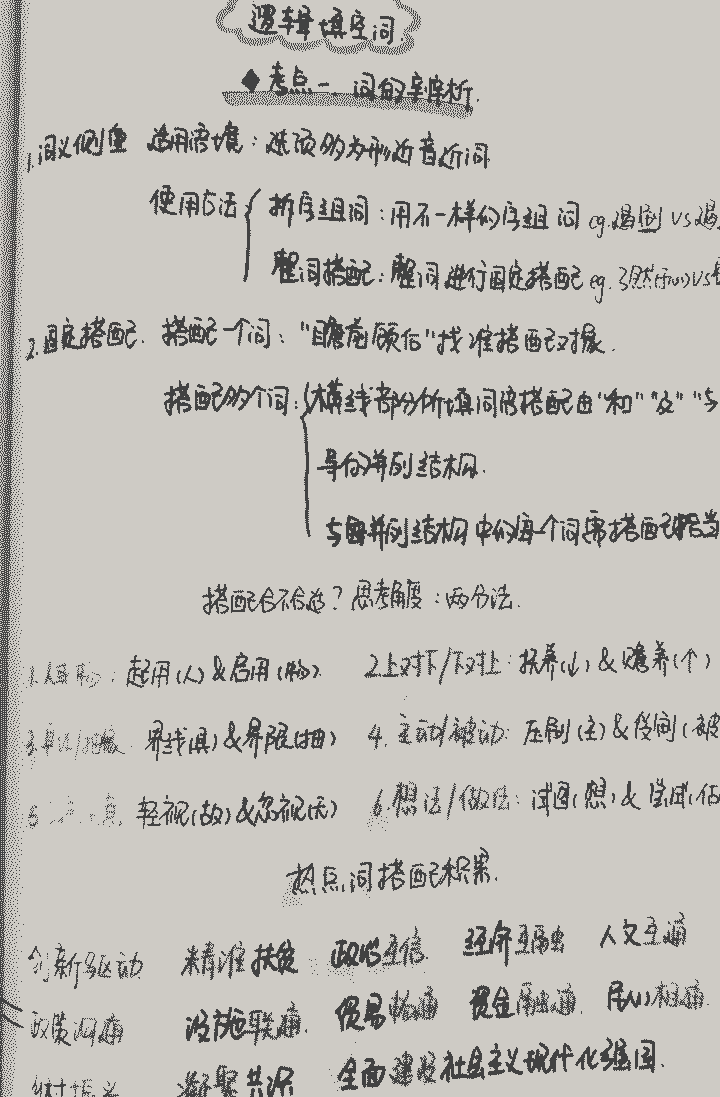 逻辑填空词.
◆ 考点一. 词的辨析.
1.词义侧重 适用语境：选项多为形近音近词
使用方法 拆字组词：用不一样的字组词 eg.
整词搭配：整词进行固定搭配 eg.
2.固定搭配. 搭配一个词："瞻前顾后"找准搭配对象.
搭配多个词：横线部分所填词需搭配由"和""及""与"
等的并列结构.
与并列结构中的每个词需搭配恰当
搭配合不合适？思考角度：两分法.
1.人&物：起用(人)&启用(物) 2.上对下/下对上：扶养(↓)&赡养(个)
3.具体/抽象. 界线(具)&界限(抽) 4.主动/被动：压制(主)&
5 轻视(故)&忽视(无) 6.想法/做法：试图(想)&尝试(
热点词搭配积累.
创新驱动 精准扶贫 政治互信 经济互融 人文互通
政策沟通 设施联通. 贸易畅通 资金融通. 民心相通.
乡村振兴 凝聚共识 全面建设社会主义现代化强国.